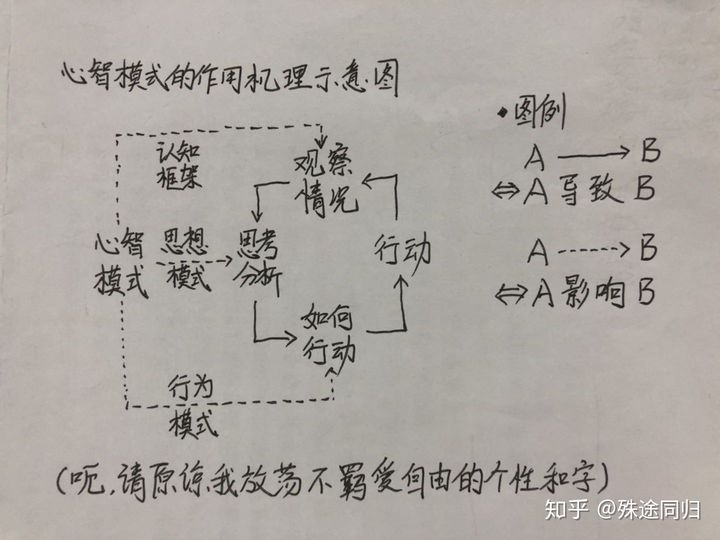 心智模式的作用机理示意图
认知
框架
观察
情况
心智
模式
思想
模式
思考
分析
行动
如何
行动
行为
模式
·图例
A → B
⇔ A 导致 B
A ⇢ B
⇔ A 影响 B
(呃,请原谅我放荡不羁爱自由的个性和字)
知乎 @殊途同归